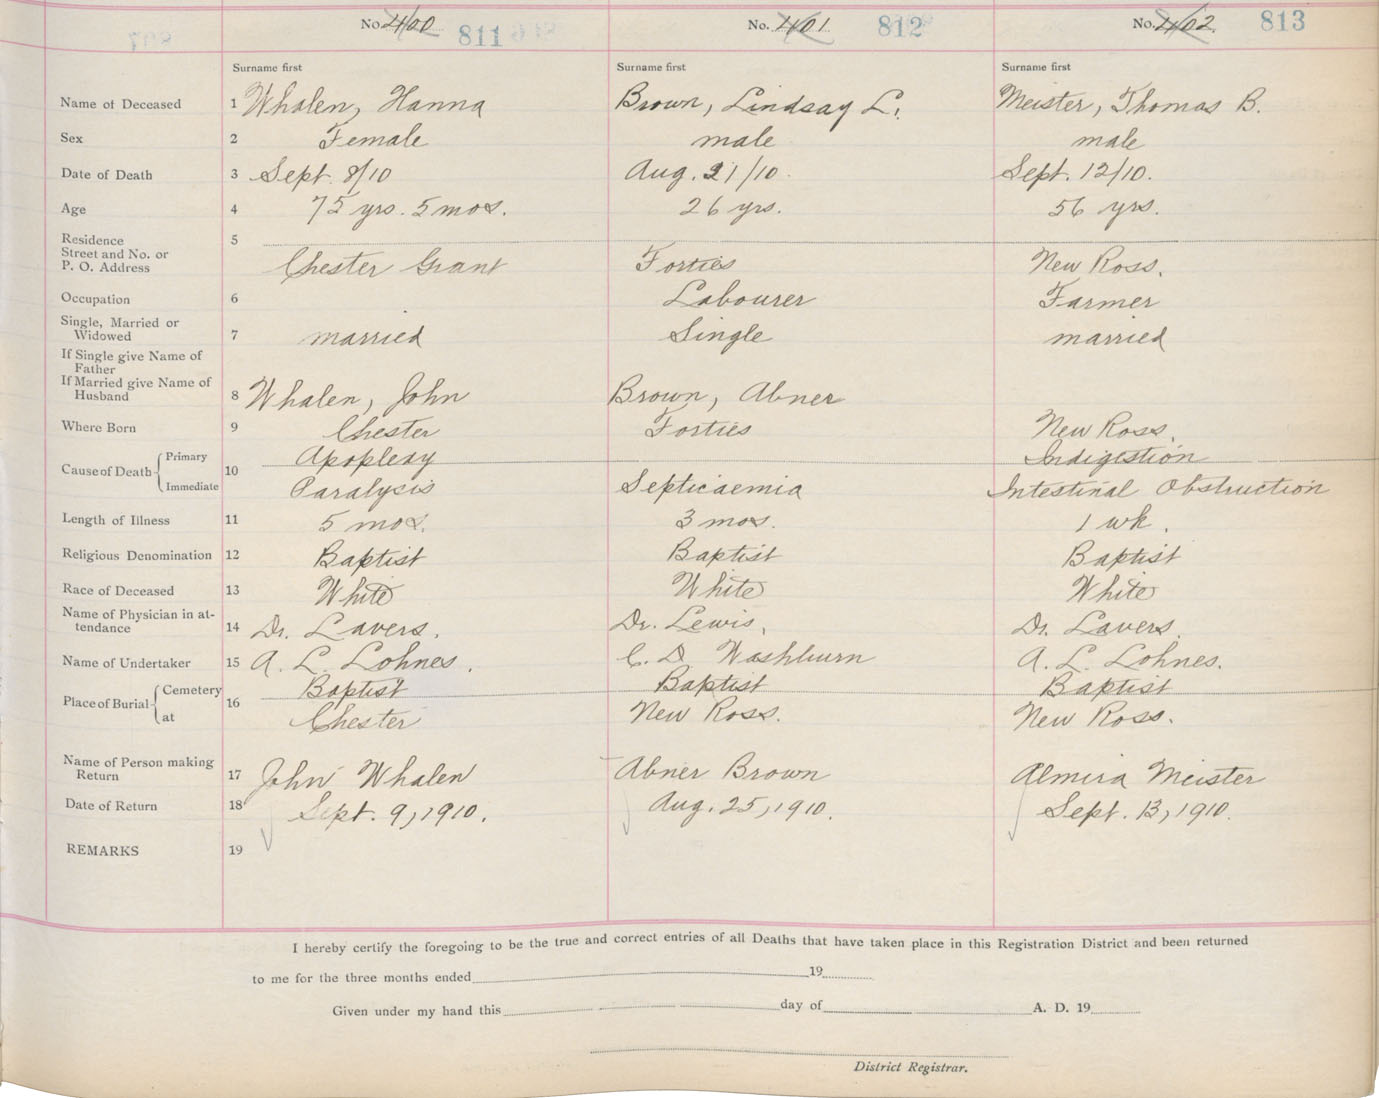 No. 400 811 No. 401 812 No. 402 813
Surname first Surname first Surname first
Name of Deceased 1 Whalen, Hanna Brown, Lindsay L. Meister, Thomas B.
Sex 2 Female male male
Date of Death 3 Sept. 8/10 Aug. 21/10. Sept. 12/10.
Age 4 75 yrs. 5 mos. 26 yrs. 56 yrs.
Residence 5
Street and No. or
P. O. Address Chester Grant Forties New Ross.
Occupation 6 Labourer Farmer
Single, Married or
Widowed 7 married Single married
If Single give Name of
Father
If Married give Name of
Husband 8 Whalen, John Brown, Abner
Where Born 9 Chester Forties New Ross.
Cause of Death 10 Primary Apoplexy Indigestion
Immediate Paralysis Septicaemia Intestinal Obstruction
Length of Illness 11 5 mos. 3 mos. 1 wk.
Religious Denomination 12 Baptist Baptist Baptist
Race of Deceased 13 White White White
Name of Physician in at-
tendance 14 Dr. Lavers. Dr. Lewis. Dr. Lavers.
Name of Undertaker 15 A. L. Lohnes. C. D. Washburn A. L. Lohnes.
Place of Burial 16 Cemetery Baptist Baptist Baptist
at Chester New Ross. New Ross.
Name of Person making
Return 17 John Whalen Abner Brown Almira Meister
Date of Return 18 Sept. 9, 1910. Aug. 25, 1910. Sept. 13, 1910.
REMARKS 19
I hereby certify the foregoing to be the true and correct entries of all Deaths that have taken place in this Registration District and been returned
to me for the three months ended 19
Given under my hand this day of A. D. 19
District Registrar.